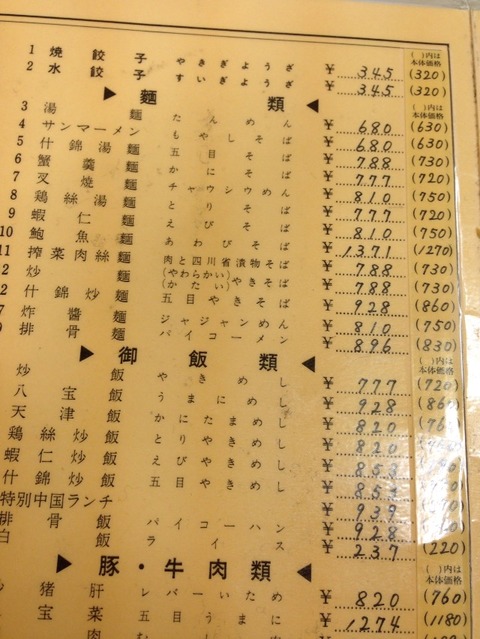 1 焼餃子 やきぎょうざ ¥345 (320)
2 水餃子 すいぎょうざ ¥345 (320)
( )内は
本体価格
▶麺類◀
( )内は
本体価格
3 湯麺 たんめん ¥680 (630)
4 サンマーメン もやしそば ¥680 (630)
5 什錦湯麺 五目そば ¥788 (730)
6 蟹羹麺 かにそば ¥777 (720)
7 叉焼麺 チャウシウめん ¥810 (750)
8 鶏絲湯麺 とりそば ¥777 (720)
9 蝦仁麺 えびそば ¥810 (750)
10 鮑魚麺 あわびそば ¥1371 (1270)
11 搾菜肉絲麺 肉と四川省漬物そば ¥788 (730)
2 炒麺 (やわらかい)(かたい)やきそば ¥788 (730)
2 什錦炒麺 五目やきそば ¥928 (860)
7 炸醤麺 ジャジャンめん ¥810 (750)
9 排骨麺 パイコーメン ¥896 (830)
▶御飯類◀
( )内は
本体価格
炒飯 やきめし ¥777 (720)
八宝飯 うまにめし ¥928 (860)
天津飯 かにたまめし ¥820
鶏絲炒飯 とりやきめし ¥820
蝦仁炒飯 えびやきめし ¥853
什錦炒飯 ¥853
特別中国ランチ ¥939
排骨飯 パイコーハン ¥928
白飯 ライス ¥237 (220)
▶豚・牛肉類◀
( )内は
本体価格
猪肝 レバーいため ¥820 (760)
宝菜 五目うまに ¥1274 (1180)
肉